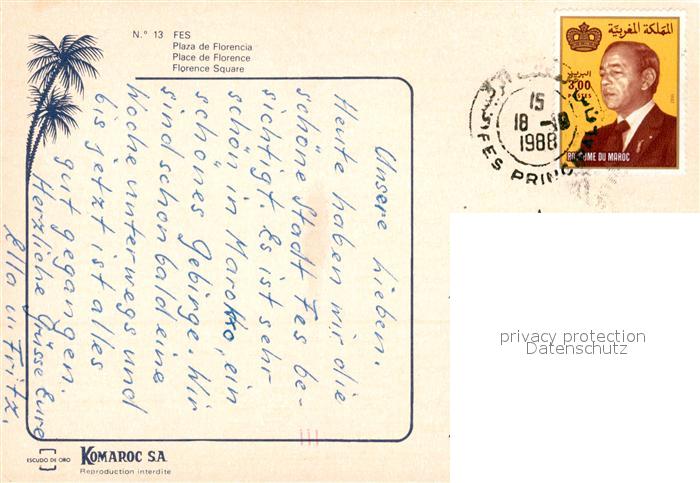 N.º 13 FES
Plaza de Florencia
Place de Florence
Florence Square
Unsere Lieben.
Heute haben wir die
schöne Stadt Fes be-
sichtigt. Es ist sehr
schön in Marokko, ein
schönes Gebirge. Wir
sind schon bald eine
Woche unterwegs und
bis jetzt ist alles
gut gegangen.
Herzliche Grüsse Eure
Ella u. Fritz.
المملكة المغربية
البريد
3,00
POSTES
ROYAUME DU MAROC
15
18-10
1988
FES PRINCIPAL
privacy protection
Datenschutz
ESCUDO DE ORO
KOMAROC S.A.
Reproduction interdite